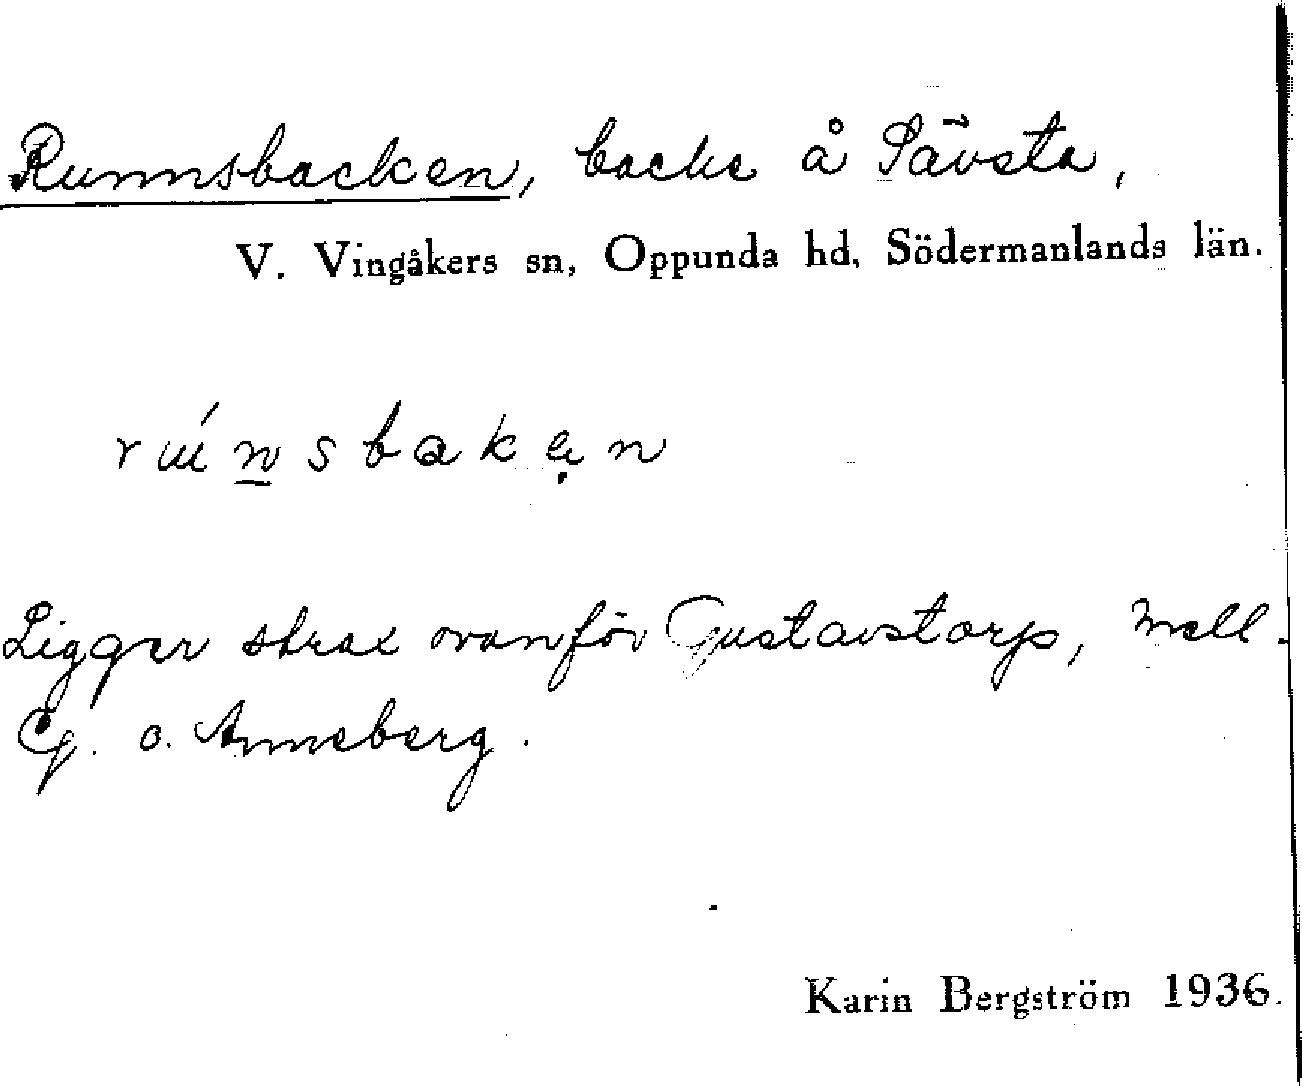 Runnsbacken, backe å Sävsta,
V. Vingåkers sn, Oppunda hd, Södermanlands län.
rúnsbakęn
Ligger strax ovanför Gustavstorp, mell.
Cg. o. Anneberg.
Karin Bergström 1936.